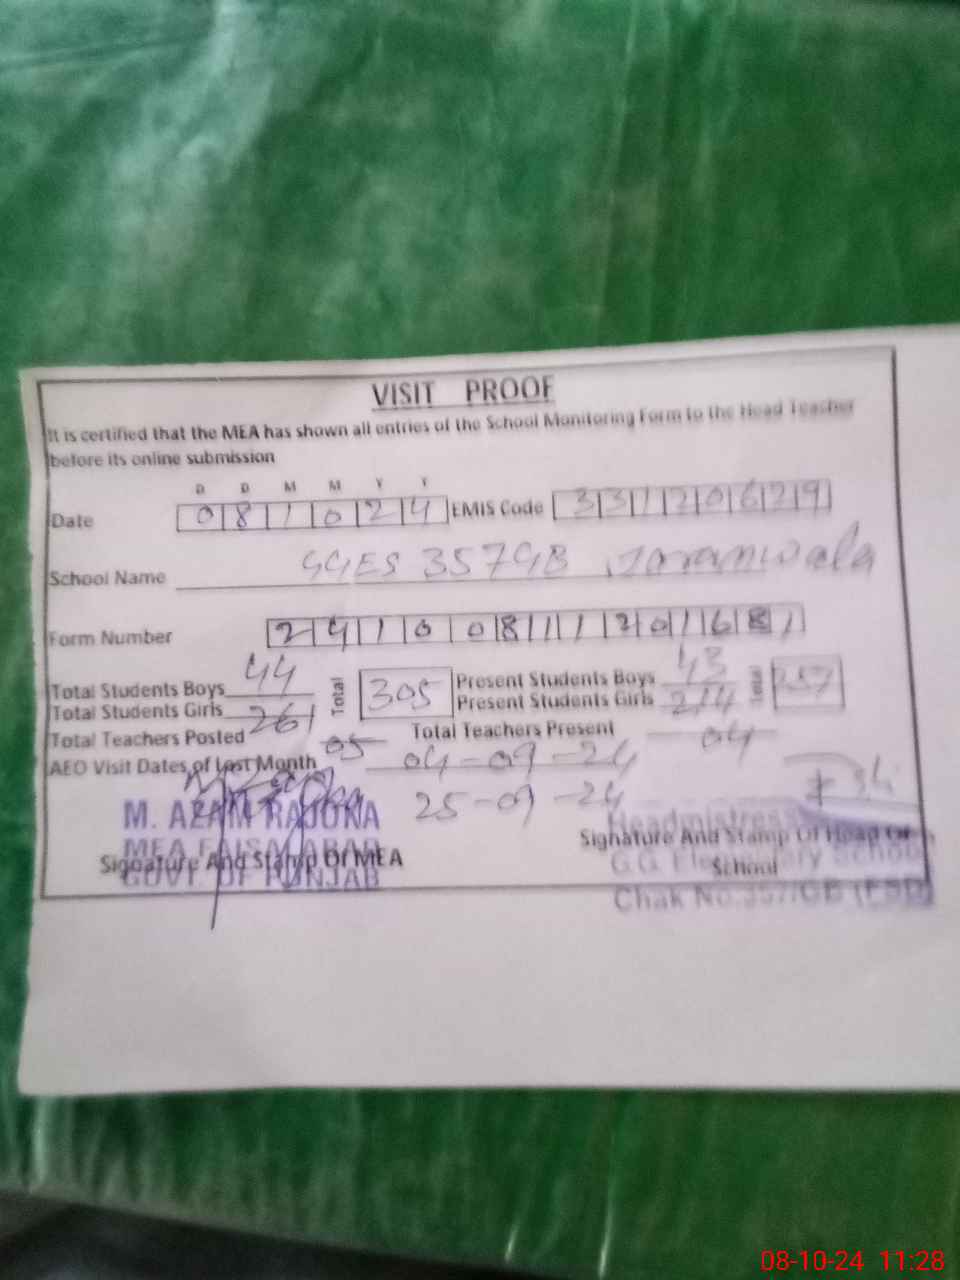 VISIT PROOF
It is certified that the MEA has shown all entries of the School Monitoring Form to the Head Teacher
before its online submission
D D M M Y Y
Date 081024 EMIS Code 33120629
School Name GGES 357GB Jaranwala
Form Number 24100811201681
Total Students Boys 44 Total 305 Present Students Boys 43 Total 257
Total Students Girls 261 Present Students Girls 214
Total Teachers Posted 05 Total Teachers Present 04
AEO Visit Dates of Last Month 04-09-24
25-09-24
M. AZAM RAJOKA
MEA FAISALABAD
GOVT OF PUNJAB
Signature And Stamp Of MEA
Headmistress
Signature And Stamp Of Head Of
School
G.G. Elementary School
Chak No.357/GB (FSD)
08-10-24 11:28